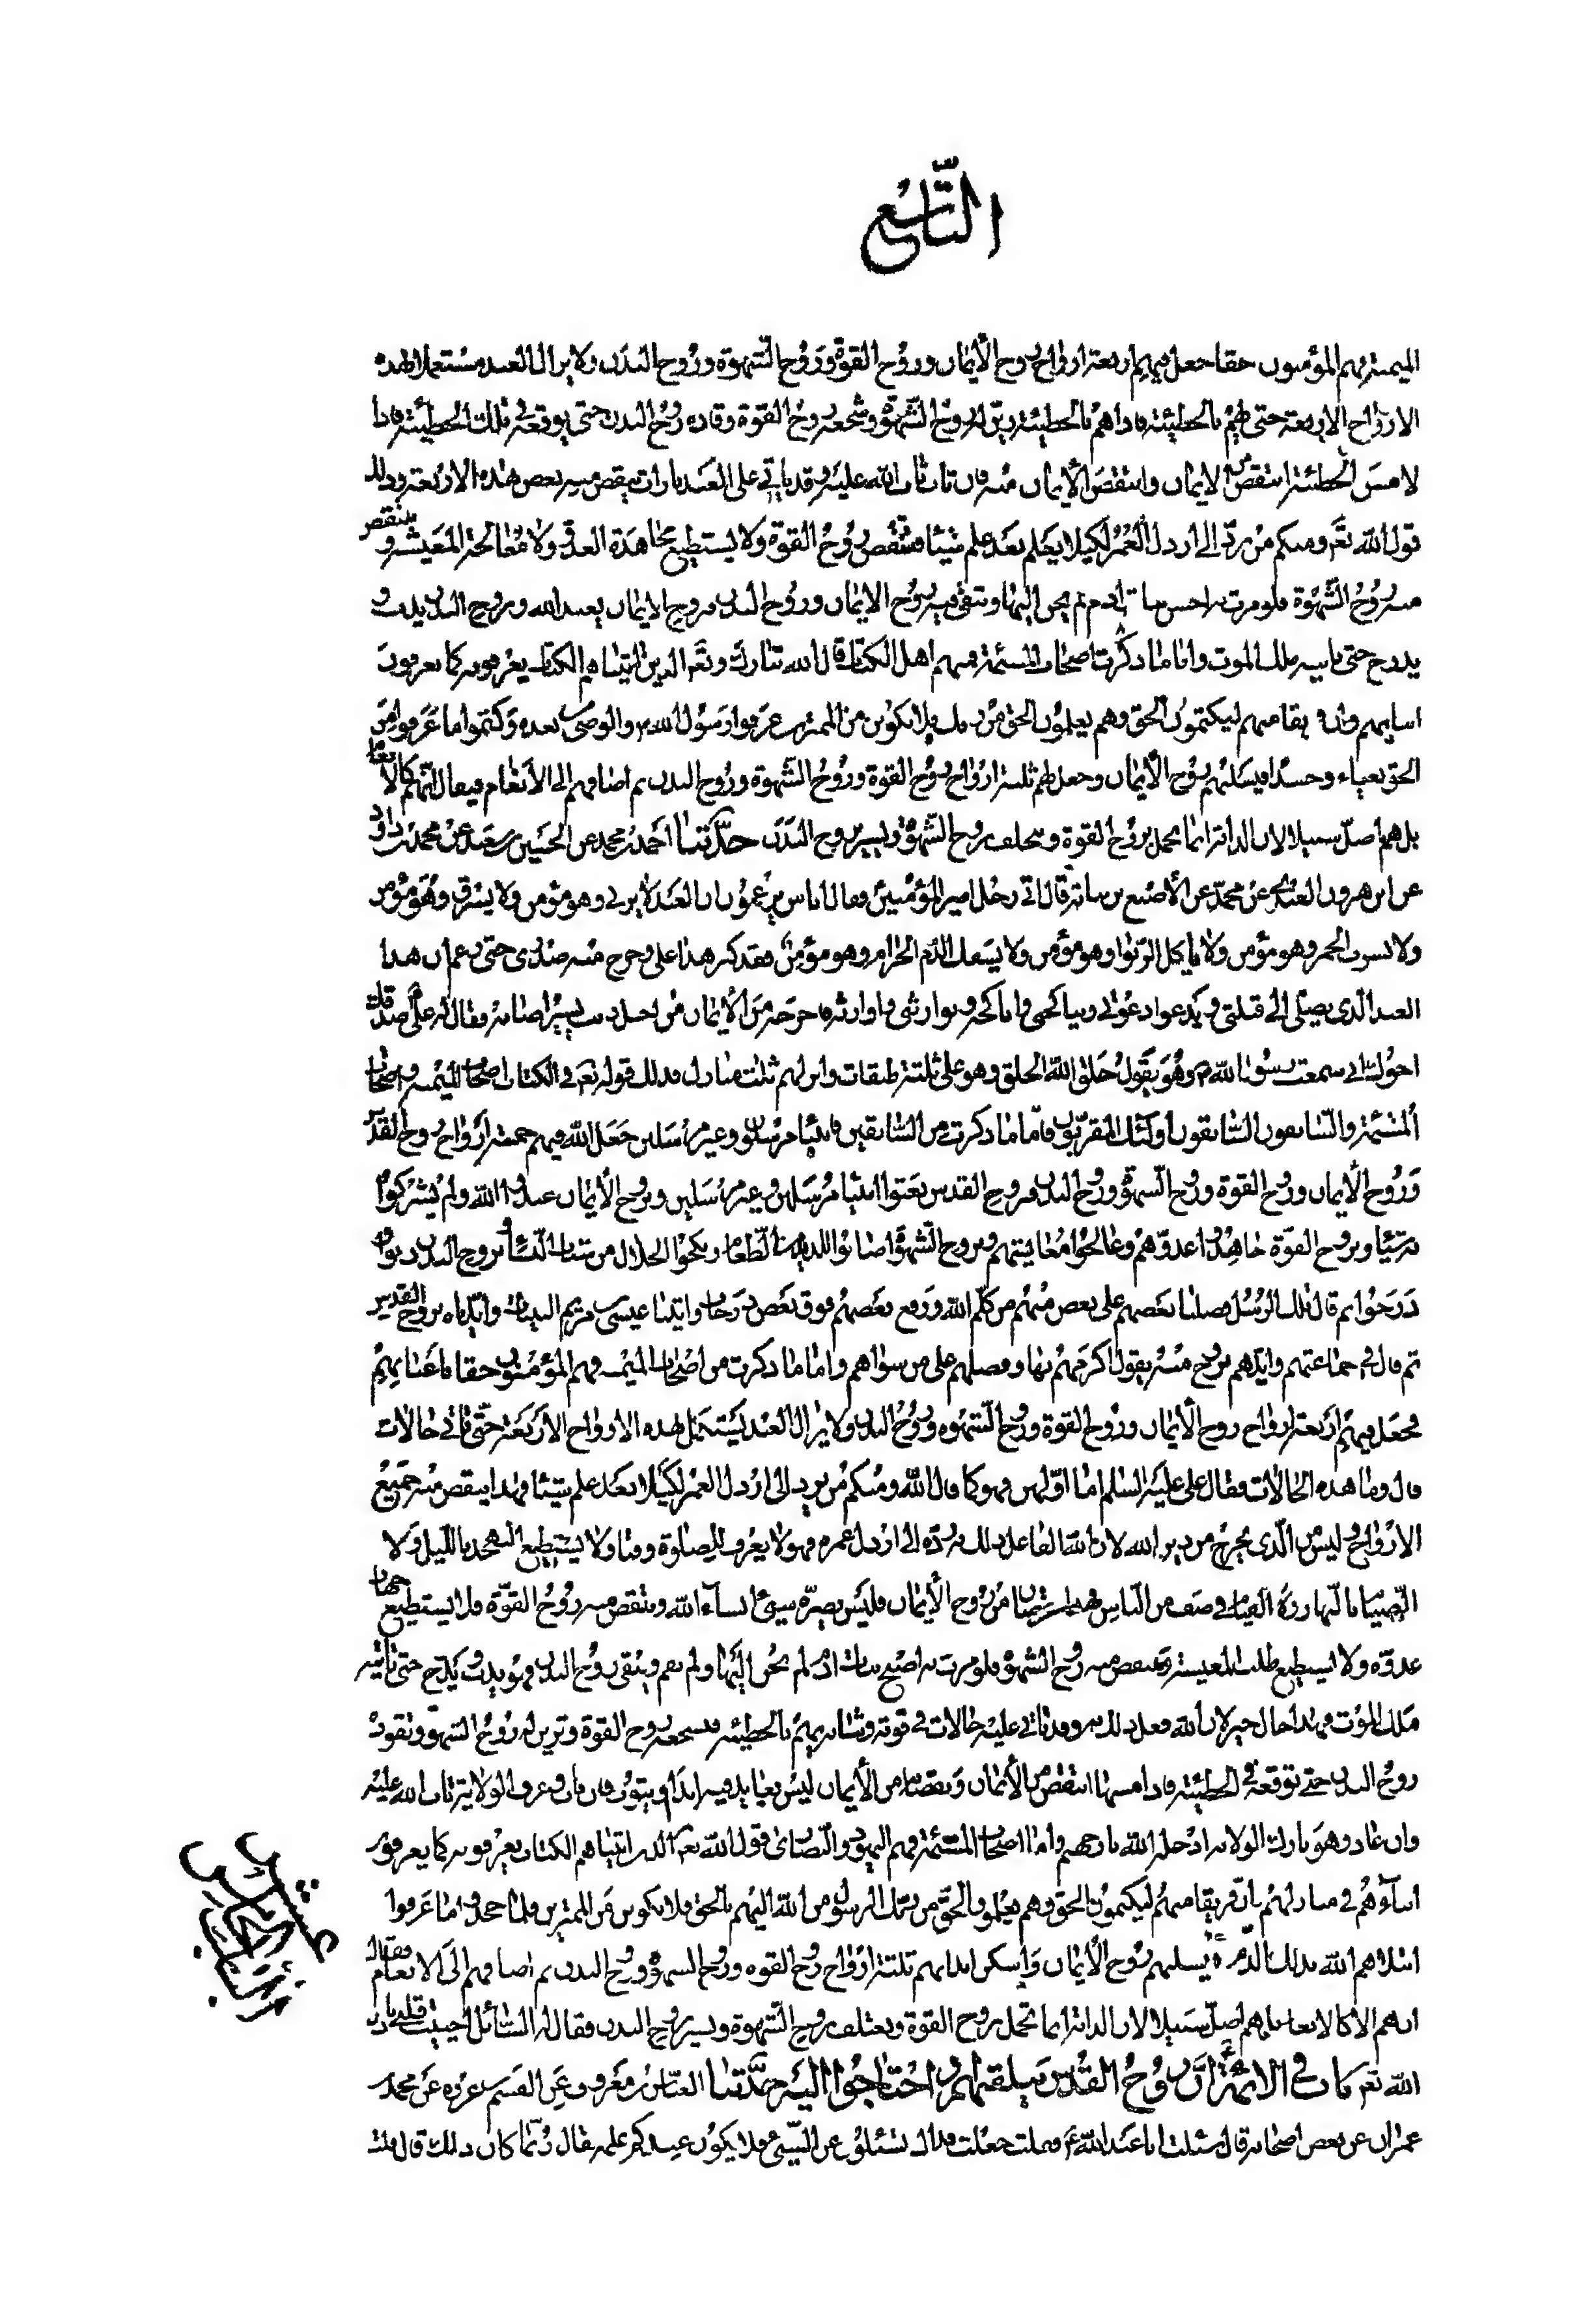 التاسع
الميمنة فهم المؤمنون حقا جعل فيهم اربعة ارواح روح الأيمان وروح القوة وروح الشهوة وروح البدن ولا يزال العبد مستعملا بهذه
الارواح الاربعة حتى يهم بالخطيئة فاذا هم بالخطيئة زين له روح الشهوة وشجعه روح القوة وقاده روح البدن حتى يوقعه فى تلك الخطيئة فاذا
لامس الخطيئة انتقص من الايمان وانتقص الأيمان منه فان تاب تاب الله عليه وقد يأتي على العبد تارات ينقص منه بعض هذه الاربعة وذلك
قول الله تعَ ومنكم من يرد الى ارذل العمر لكيلا يعلم بعد علم شيئا فتنقص روح القوة ولا يستطيع مجاهدة العدو ولا معالجة المعيشة وينتقص
منه روح الشهوة فلو مرت به احسن بنات آدم لم يحن اليها وتبقى فيه روح الايمان وروح البدن فبروح الايمان يعبد الله وبروح البدن يدب و
يدرج حتى ياتيه ملك الموت واما ما ذكرت اصحاب المشئمة فمنهم اهل الكتاب قال الله تبارك وتعَ الذين اتيناهم الكتاب يعرفونه كما يعرفون
ابناءهم وان فريقا منهم ليكتمون الحق وهم يعلمون الحق من ربك فلا تكونن من الممترين عرفوا رسول الله ص والوصى من بعده وكتموا ما عرفوا من
الحق بغيا وحسدا فيسلبهم روح الأيمان وجعل لهم ثلثة ارواح روح القوة وروح الشهوة وروح البدن ثم اضافهم الى الأنعام فقال ان هم الا كالأنعام
بل هم اضل سبيلا لان الدابة انما تحمل بروح القوة وتعتلف بروح الشهوة وتسير بروح البدن حدثنا احمد بن محمد عن الحسين بن سعيد عن محمد بن داود
عن ابن هرون العبدى عن محمد عن الأصبغ بن نباتة قال اتى رجل امير المؤمنين فقال اناس يزعمون ان العبد لا يزنى وهو مؤمن ولا يسرق وهو مؤمن
ولا يشرب الخمر وهو مؤمن ولا يأكل الربوا وهو مؤمن ولا يسفك الدم الحرام وهو مؤمن فقد كبر هذا على وحرج منه صدرى حتى زعم ان هذا
العبد الذى يصلى الى قبلتى ويدعو دعوتى ويناكحنى واناكحه ويوارثنى واوارثه اخرجه من الأيمان من اجل ذنب يسير اصابه فقال له على صدقك
اخوك انى سمعت رسول الله ص وهو يقول خلق الله الخلق وهو على ثلثة طبقات وانزلهم ثلث منازل فذلك قوله تعَ فى الكتاب اصحاب الميمنة واصحاب
المشئمة والسابقون السابقون اولئك المقربون فاما ما ذكرت من السابقين فانبياء مرسلون وغير مرسلين جعل الله فيهم خمسة ارواح روح القدس
وروح الأيمان وروح القوة وروح الشهوة وروح البدن فبروح القدس بعثوا انبياء مرسلين وغير مرسلين وبروح الأيمان عبدوا الله ولم يشركوا
به شيئا وبروح القوة جاهدوا عدوهم وعالجوا معايشهم وبروح الشهوة اصابوا اللذيذ من الطعام ونكحوا الحلال من شباب النساء وبروح البدن دبوا و
درجوا ثم قال تلك الرسل فضلنا بعضهم على بعض منهم من كلم الله ورفع بعضهم فوق بعض درجات واتينا عيسى بن مريم البينات وايدناه بروح القدس
ثم قال فى جماعتهم وايدهم بروح منه يقول اكرمهم بها وفضلهم على من سواهم واما ما ذكرت من اصحاب الميمنة فهم المؤمنون حقا باعيانهم
فجعل فيهم اربعة ارواح روح الأيمان وروح القوة وروح الشهوة وروح البدن ولا يزال العبد يستكمل بهذه الارواح الاربعة حتى تأتى حالات
قال وما هذه الحالات فقال على عليه السلم اما اولهن فهو كما قال الله ومنكم من يرد الى ارذل العمر لكيلا يعلم بعد علم شيئا فهذا ينتقص منه جميع
الارواح وليس من الذى يخرج من دين الله لان الله الفاعل ذلك به رده الى ارذل عمره فهو لا يعرف للصلوة وقتا ولا يستطيع التهجد بالليل ولا
الصيام بالنهار ولا القيام في صف من الناس فهذا نقصان من روح الأيمان فليس يضره شيئ انشاء الله وينتقص منه روح القوة فلا يستطيع جهاد
عدوه ولا يستطيع طلب المعيشة وينتقص منه روح الشهوة فلو مرت به اصبح بنات ادم لم يحن اليها ولم يقم ويبقى روح البدن فهو يدب ويدرج حتى يأتيه
ملك الموت فهذا حال خير لان الله فعل ذلك به وقد تأتى عليه حالات في قوته وشبابه يهم بالخطيئة فيشجعه روح القوة وتزين له روح الشهوة وتقوده
روح البدن حتى توقعه فى الخطيئة فاذا مسها انتقص من الأيمان ونقصانه من الأيمان ليس بعايد فيه ابدا او يتوب فان تاب وعرف الولاية تاب الله عليه
وان عاد وهو تارك الولاية ادخله الله نار جهنم واما اصحاب المشئمة فهم اليهود والنصارى قول الله تعَ الذين اتيناهم الكتاب يعرفونه كما يعرفون
ابناءهم في منازلهم وان فريقا منهم ليكتمون الحق وهم يعلمون الحق من ربك الرسول من الله اليهم بالحق فلا تكونن من الممترين فلما جحدوا ما عرفوا
ابتلاهم الله بذلك الذم فسلبهم روح الأيمان واسكن ابدانهم ثلثة ارواح روح القوة وروح الشهوة وروح البدن ثم اضافهم الى الانعام فقال
ان هم الا كالانعام بل هم اضل سبيلا لان الدابة انما تحمل بروح القوة وتعتلف بروح الشهوة وتسير بروح البدن فقال له السائل احييت قلبى باذن
الله تعَ باب فى الائمة ان روح القدس يتلقاهم اذا احتاجوا اليه حدثنا العباس بن معروف عن القسم بن عروة عن محمد بن
عمران عن بعض اصحابه قال سئلت ابا عبد الله ع فقلت جعلت فداك تسئلون عن الشيئ فلا يكون عندكم علمه فقال ربما كان ذلك قال قلت